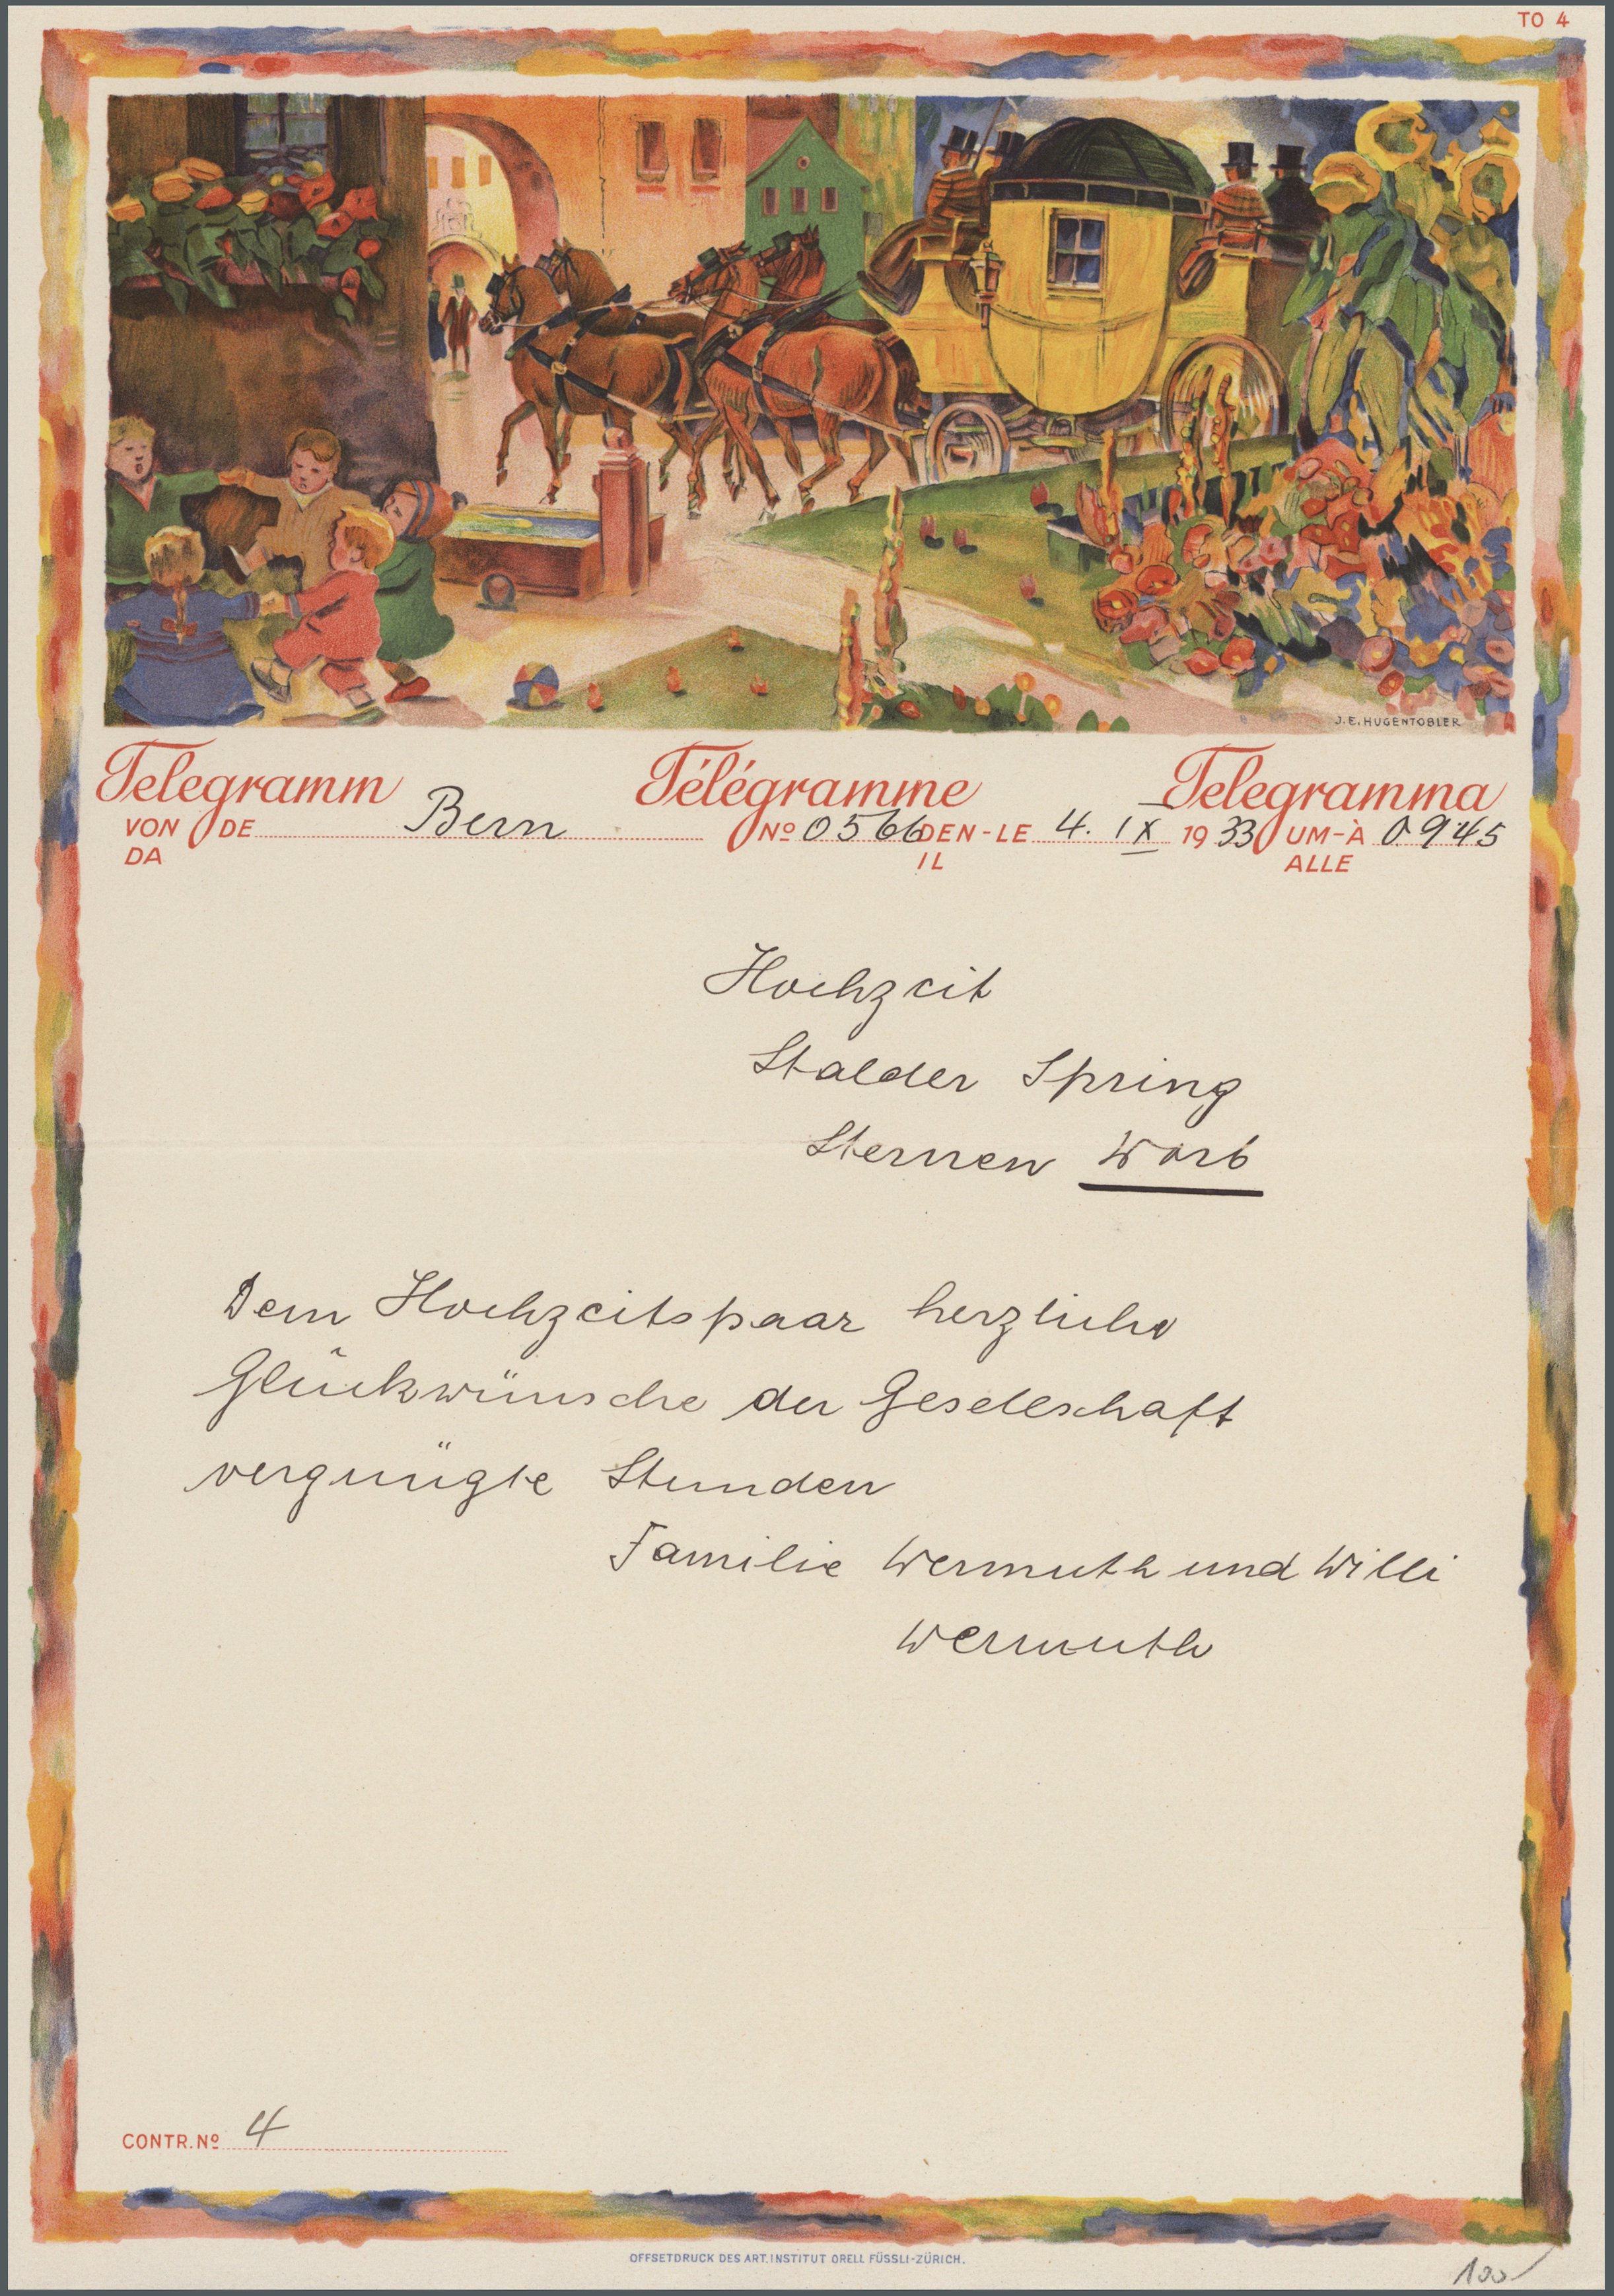 TO 4
J.E. HUGENTOBLER
Telegramm Télégramme Telegramma
VON DE Bern No 0566 DEN-LE 4. IX 1933 UM-À 0945
DA IL ALLE
Hochzeit
Stalder Spring
Sternen Worb
Dem Hochzeitspaar herzliche
Glückwünsche der Gesellschaft
vergnügte Stunden
Familie Wermuth und Willi
Wermuth
CONTR. No 4
OFFSETDRUCK DES ART. INSTITUT ORELL FÜSSLI-ZÜRICH.
100